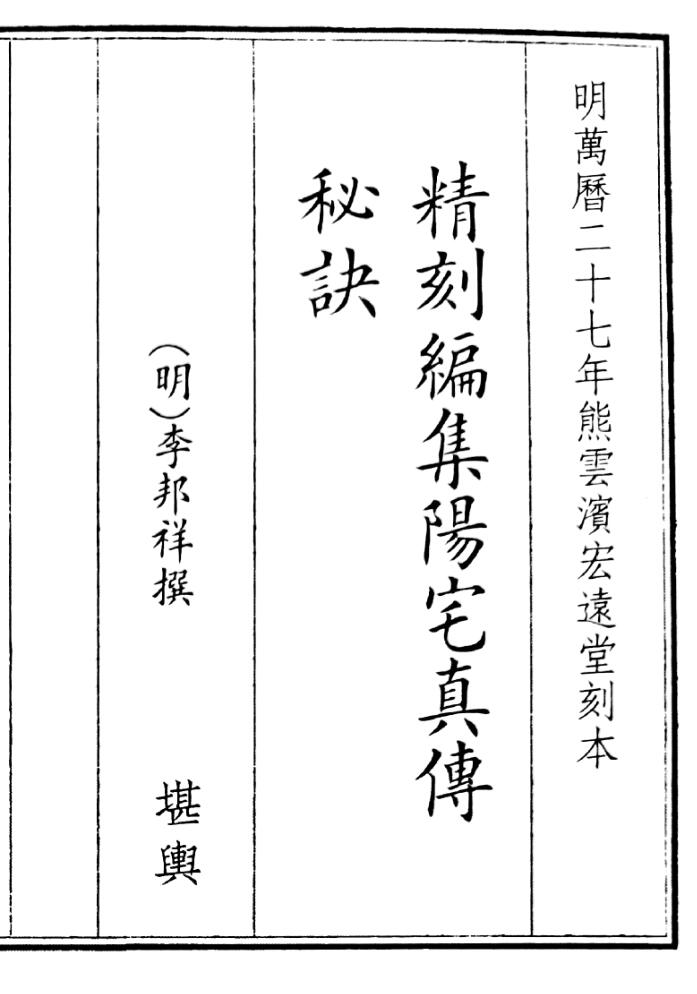 明萬曆二十七年熊雲濱宏遠堂刻本
精刻編集陽宅真傳
秘訣
（明）李邦祥撰
堪輿